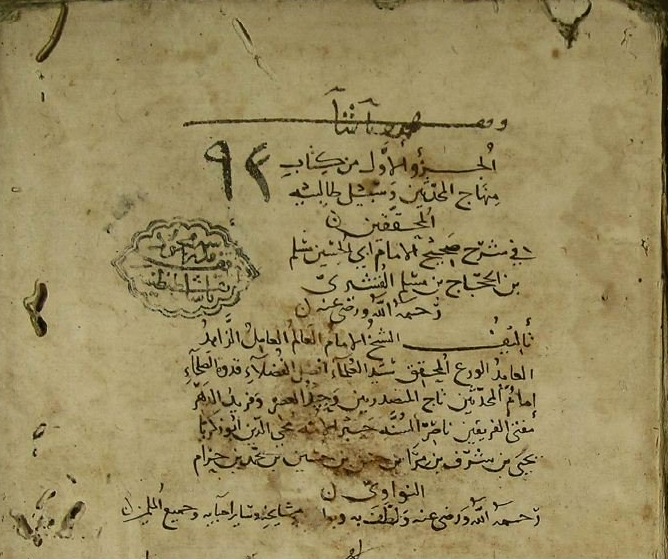 الجزؤ الأول من كتاب
منهاج المحدثين وسبيل طالبيه
المحققين
في شرح صحيح الامام ابي الحسين مسلم
بن الحجاج بن مسلم القشيري
رحمه الله ورضي عنه
٩٢
تأليف الشيخ الإمام العالم العامل الزاهد
العابد الورع المحقق سيد العلماء افضل الفضلاء قدوة الصلحاء
إمام المحدثين تاج المصدرين وحيد العصر وفريد الدهر
مفتى الفريقين ناصر السنة محي الدين ابو زكريا
يحيى بن شرف بن مرا بن حسن بن حسين بن محمد بن حزام
النواوي
رحمه الله ورضى عنه ولطف به مشايخه وساير احبابه وجميع المسلمين